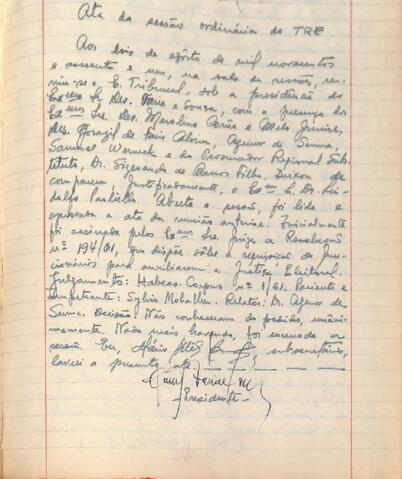 Ata da sessão ordinária do TRE
Aos dois de agôsto de mil novecentos
e sessenta e um, na sala de sessões, reu-
niu-se o E. Tribunal, sob a presidência do
Exmo Sr. Des. Faria e Sousa, com a presença dos
Exmos Srs. des. Merolino Corrêa e Melo Júnior,
drs. Horozil de Faria Alvim, Agenor de Senna,
Samuel Werneck e do Procurador Regional Subs-
tituto, Dr. Sizenando de Barros Filho. Deixou de
comparecer, justificadamente, o Exmo Sr. Dr.
Aberta a sessão, foi lida e
aprovada a ata da reunião anterior. Inicialmente
foi assinada pelos Exmos Srs. Juízes a Resolução
nº 194/61, que dispõe sôbre a requisição de fun-
cionários para auxiliarem a Justiça Eleitoral.
Julgamento: Habeas-Corpus nº 1/61. Paciente e
impetrante: Sylvio. Relator: Dr. Agenor de
Senna. Decisão: Não conheceram do pedido, unâni-
memente. Nada mais havendo, foi encerrada a
sessão. Eu, subsecretário,
lavrei a presente ata
Presidente